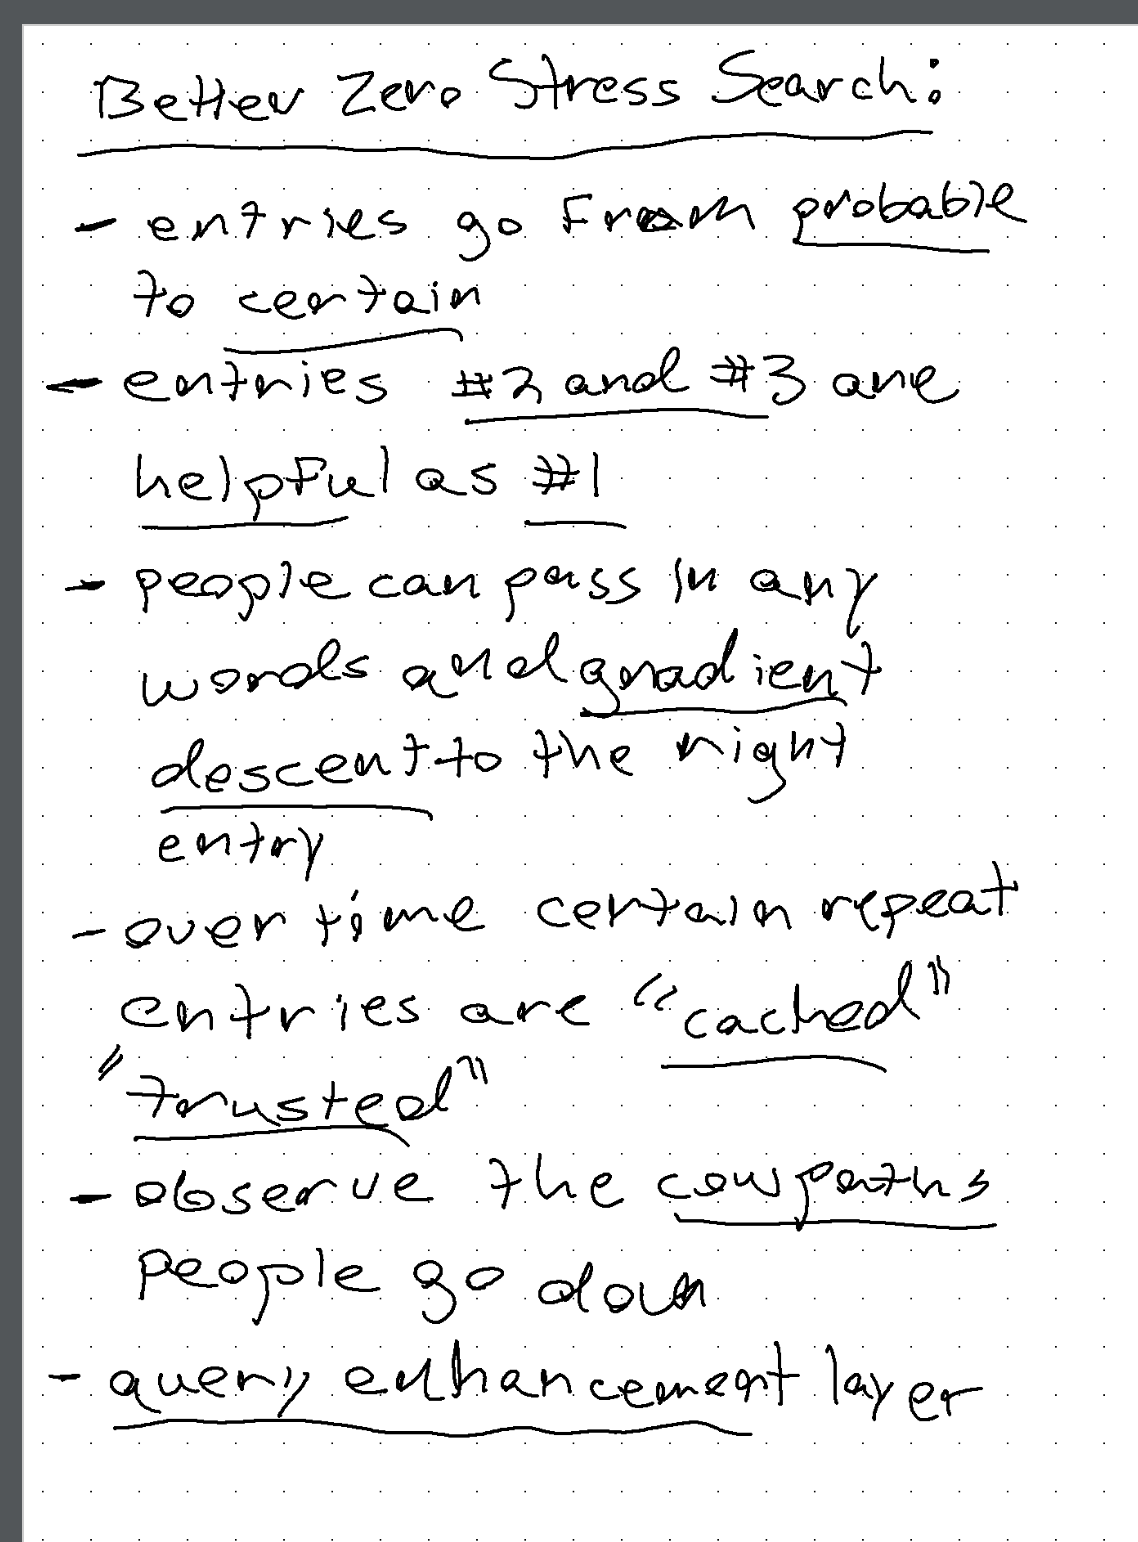 Better Zero Stress Search:
- entries go From probable
to certain
- entries #2 and #3 are
helpful as #1
- people can pass in any
words and gradient
descent to the right
entry
- over time certain repeat
entries are "cached"
"trusted"
- observe the cowpaths
people go down
- query enhancement layer